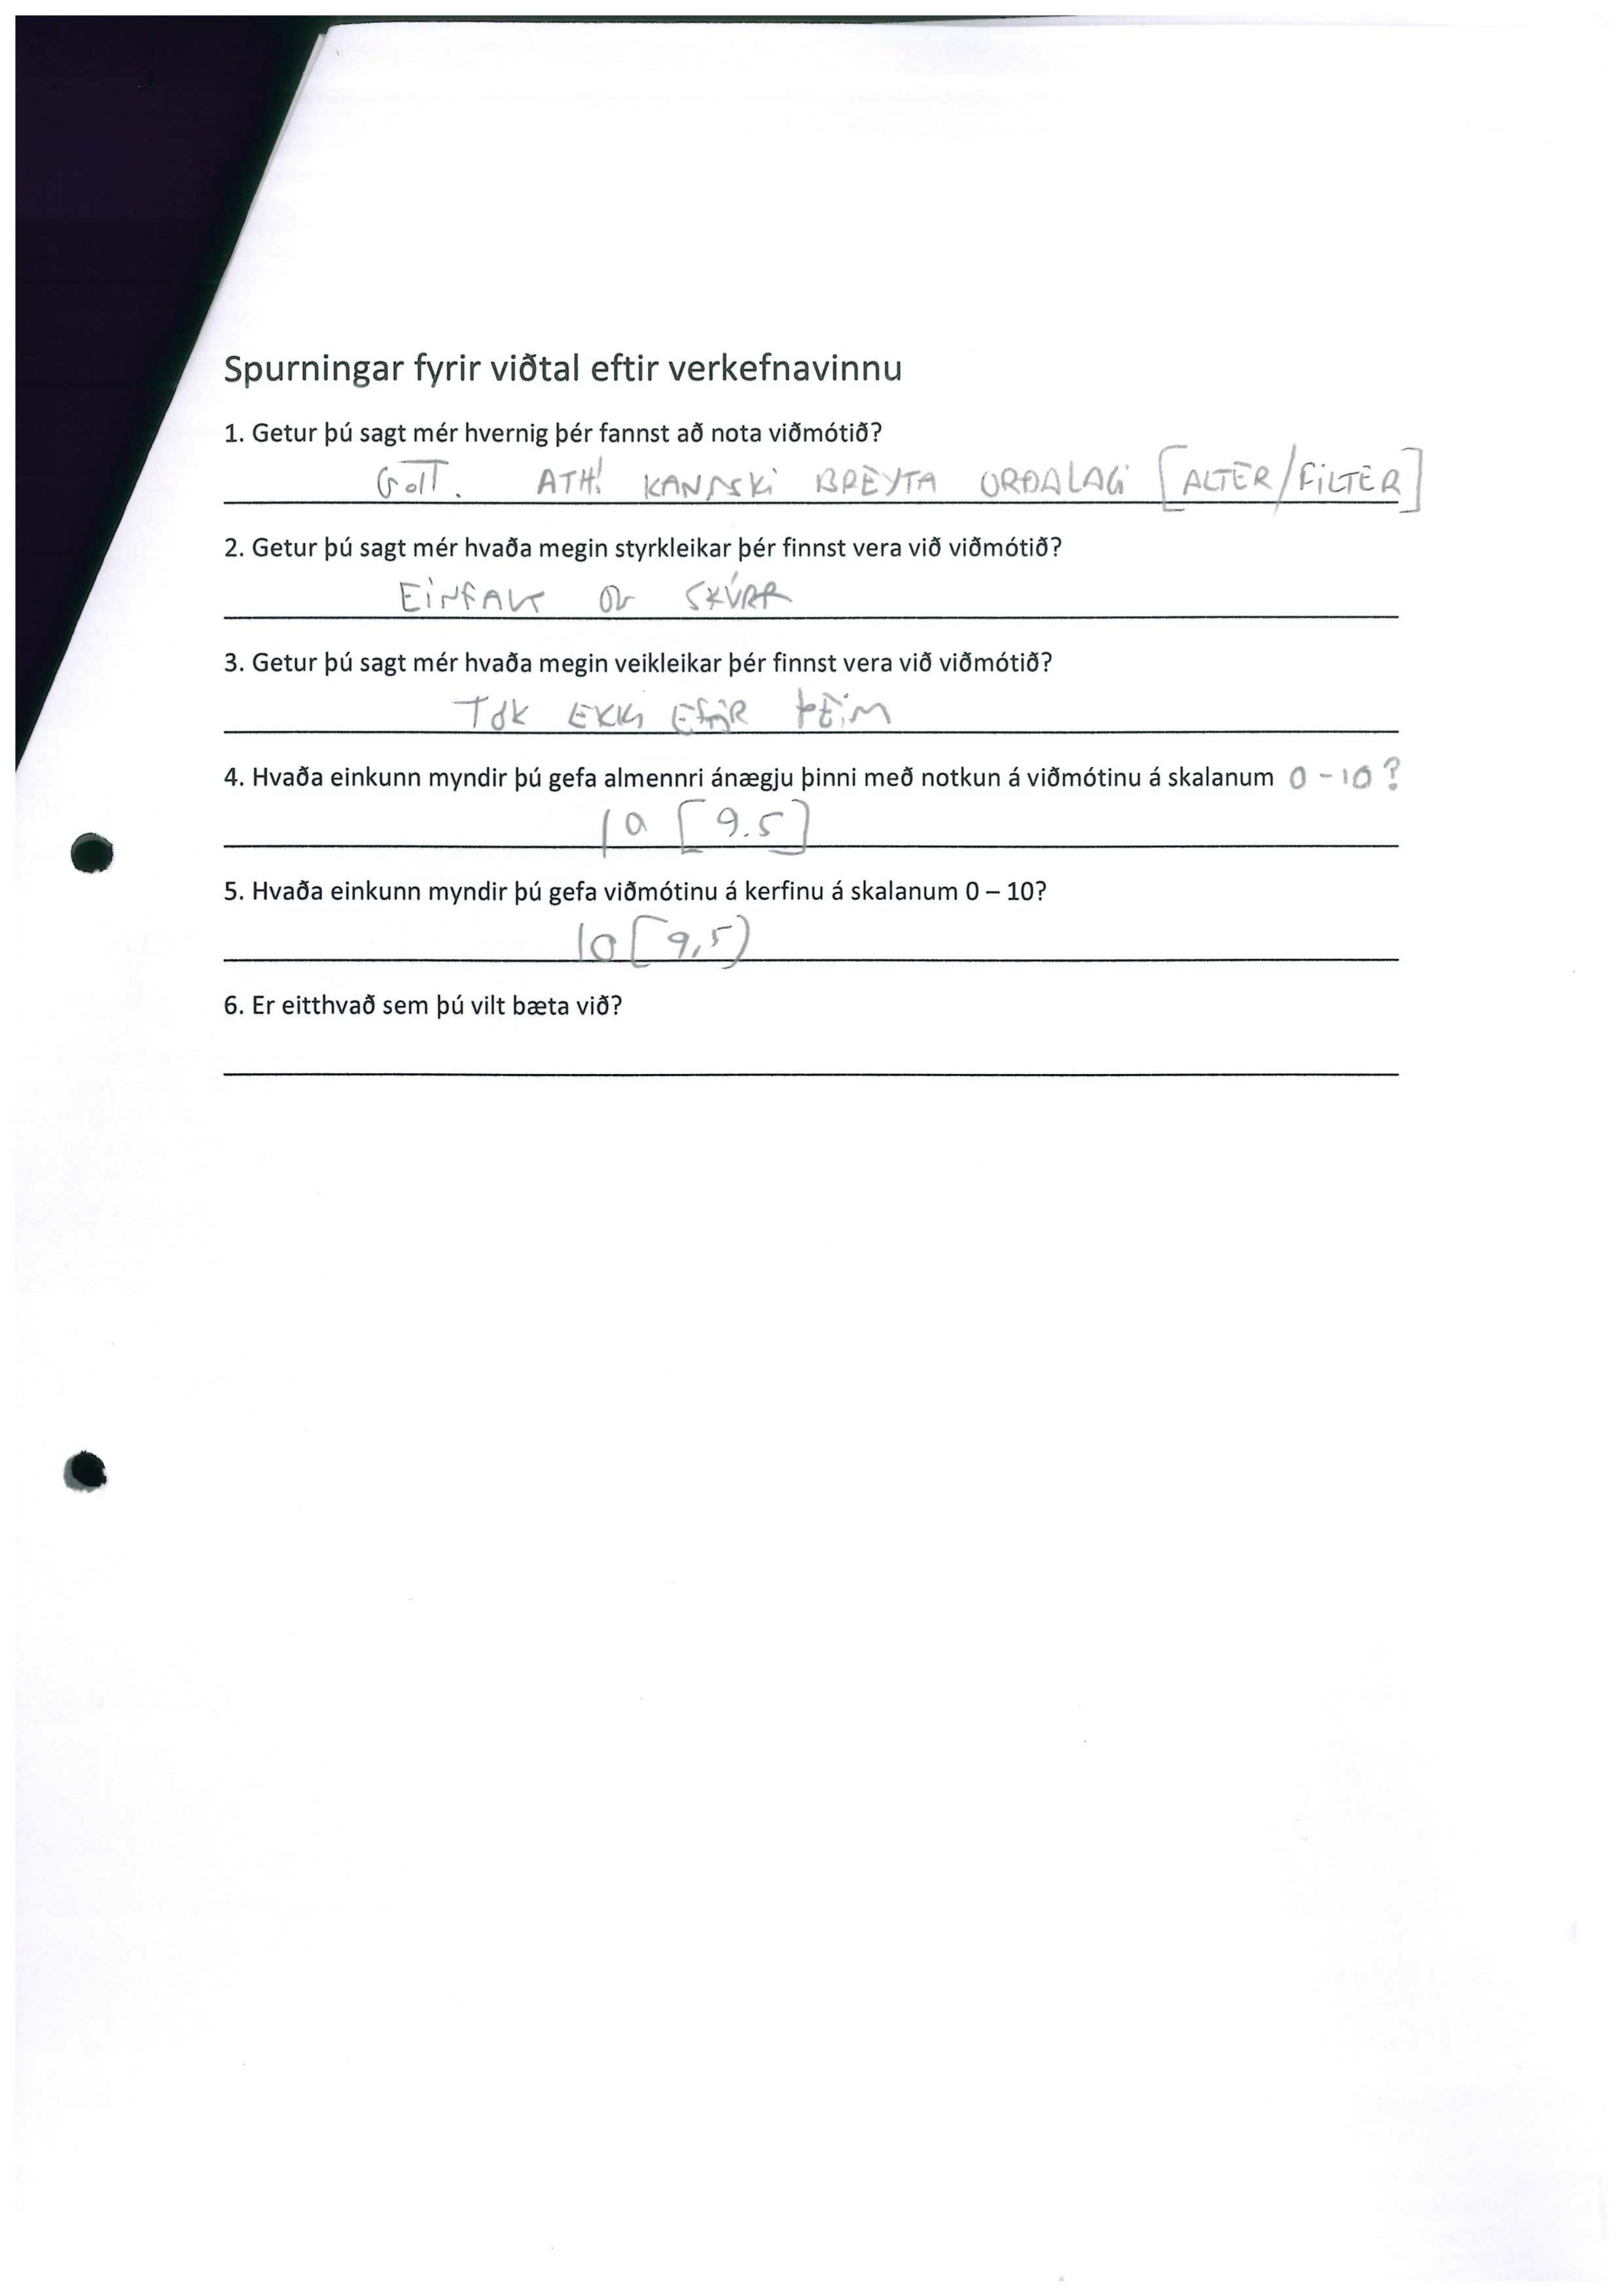 Spurningar fyrir viðtal eftir verkefnavinnu
1. Getur þú sagt mér hvernig þér fannst að nota viðmótið?
GOTT. ATH! KANNSKI BREYTA ORÐALAGI [ALTER/FILTER]
2. Getur þú sagt mér hvaða megin styrkleikar þér finnst vera við viðmótið?
EINFALT OG SKÝRR
3. Getur þú sagt mér hvaða megin veikleikar þér finnst vera við viðmótið?
TÓK EKKI EFTIR ÞEIM
4. Hvaða einkunn myndir þú gefa almennri ánægju þinni með notkun á viðmótinu á skalanum 0 - 10?
10 [9.5]
5. Hvaða einkunn myndir þú gefa viðmótinu á kerfinu á skalanum 0 – 10?
10 [9,5)
6. Er eitthvað sem þú vilt bæta við?